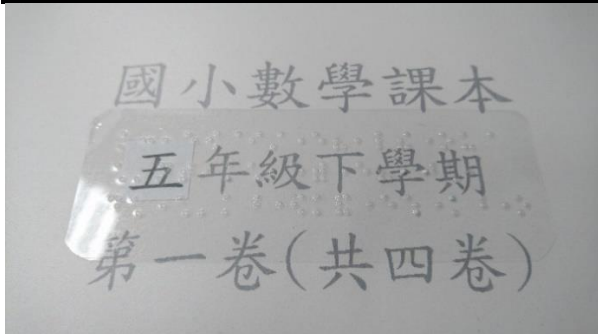 國小數學課本
五年級下學期
第一卷(共四卷)